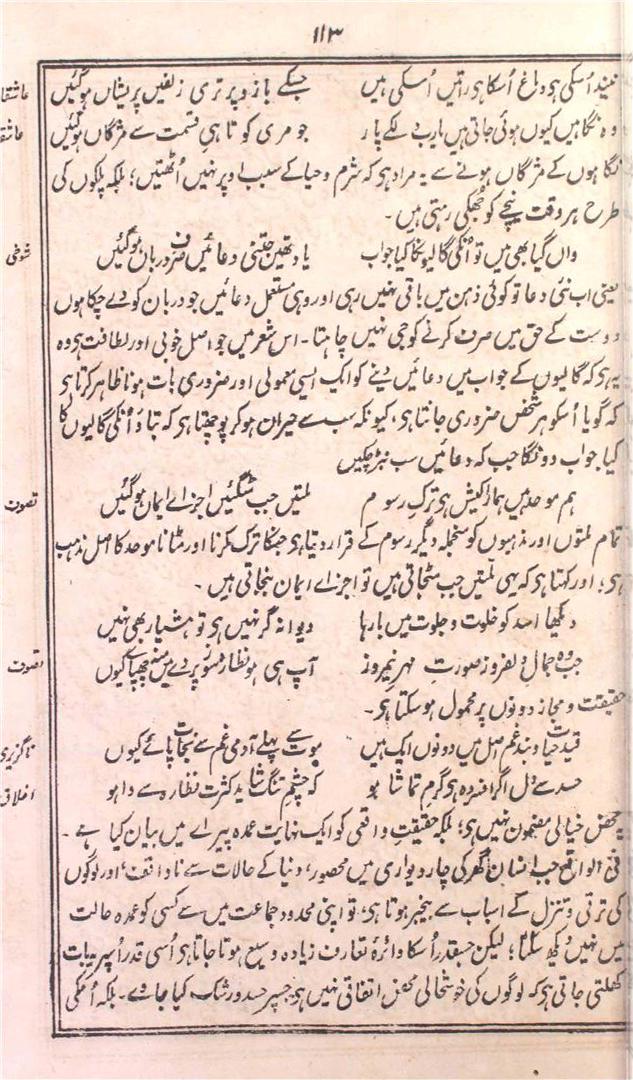 ۱۱۳
نیند اُسکی ہی دماغ اُسکا ہی راتیں اُسکی ہیں جسکے بازو پر تری زلفیں پریشاں ہوگئیں
وہ نگاہیں کیوں ہوئی جاتی ہیں یارب دلکے پار جو مری کوتاہیِ قسمت سے مژگاں ہوگئیں
نگاہوں کے مژگاں ہونے سے یہ مراد ہی کہ شرم و حیا کے سبب اوپر نہیں اُٹھتیں؛ بلکہ پلکوں کی
طرح ہر وقت نیچے کو جھکی رہتی ہیں۔
شوخی
واں گیا بھی میں تو اُنکی گالیونکا کیا جواب یاد تھیں جتنی دعائیں صرفِ درباں ہوگئیں
یعنی اب نئی دعا تو کوئی ذہن میں باقی نہیں رہی اور وہی مستعمل دعائیں جو دربان کو دے چکا ہوں
دوست کے حق میں صرف کرنے کو جی نہیں چاہتا۔ اس شعر میں جو اصل خوبی اور لطافت ہی وہ
یہ ہی کہ گالیوں کے جواب میں دعائیں دینے کو ایک ایسی معمولی اور ضروری بات ہونا ظاہر کرتا ہی
کہ گویا اُسکو ہر شخص ضروری جانتا ہی، کیونکہ سب سے حیران ہو کر پوچھتا ہی کہ بتاؤ اُنکی گالیوں کا
کیا جواب دونگا جب کہ دعائیں سب نبڑ چکیں
تصوف
ہم موحد ہیں ہمارا کیش ہی ترکِ رسوم ملتیں جب مٹگئیں اجزاے ایماں ہوگئیں
تمام ملتوں اور مذہبوں کو منجملہ دیگر رسوم کے قرار دیتا ہی جنکا ترک کرنا اور مٹانا موحد کا اصل مذہب
ہی؛ اور کہتا ہی کہ یہی ملتیں جب مٹجاتی ہیں تو اجزاے ایمان بنجاتی ہیں۔
دیکھا اسد کو خلوت و جلوت میں بارہا دیوانہ گر نہیں ہی تو ہشیار بھی نہیں
تصوف
جب وہ جمالِ دلفروز صورتِ مہرِ نیمروز آپ ہی ہو نظارہ سوز پردے میں منہ چھپائے کیوں
حقیقت و مجاز دونوں پر محمول ہو سکتا ہی۔
قیدِ حیات و بندِ غم اصل میں دونوں ایک ہیں موت سے پہلے آدمی غم سے نجات پائے کیوں
حسد سے دل اگر افسردہ ہی گرمِ تماشا ہو کہ چشمِ تنگ شاید کثرتِ نظارہ سے وا ہو
یہ محض خیالی مضمون نہیں ہی؛ بلکہ حقیقتِ واقعی کو ایک نہایت عمدہ پیراے میں بیان کیا ہے۔
فی الواقع جب انسان گھر کی چار دیواری میں محصور، دنیا کے حالات سے ناواقف، اور لوگوں
کی ترقی و تنزل کے اسباب سے بیخبر ہوتا ہی؛ تو اپنی محدود جماعت میں سے کسی کو عمدہ حالت
میں نہیں دیکھ سکتا؛ لیکن جسقدر اُسکا دائرۂ تعارف زیادہ وسیع ہوتا جاتا ہی اُسی قدر اُسپر یہ بات
کھلتی جاتی ہی کہ لوگوں کی خوشحالی محض اتفاقی نہیں ہی جسپر حسد و رشک کیا جاوے۔ بلکہ اُنکی